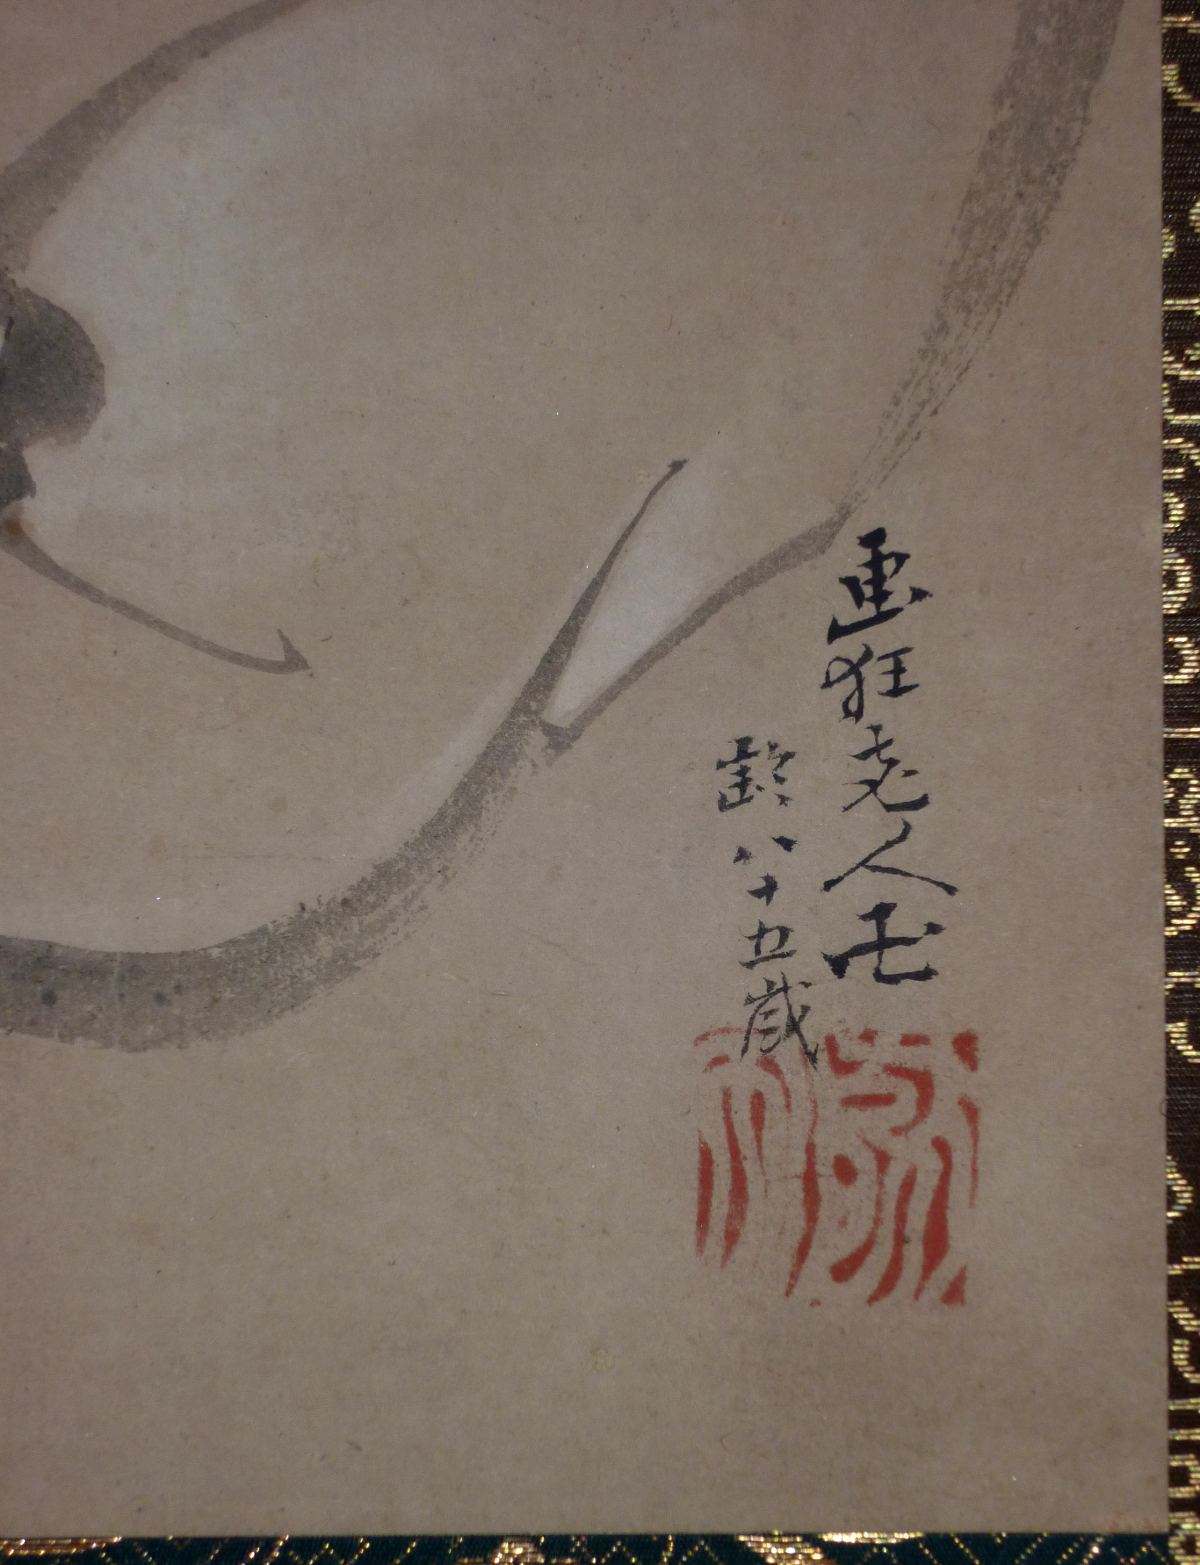 画狂老人卍
齢八十五歳